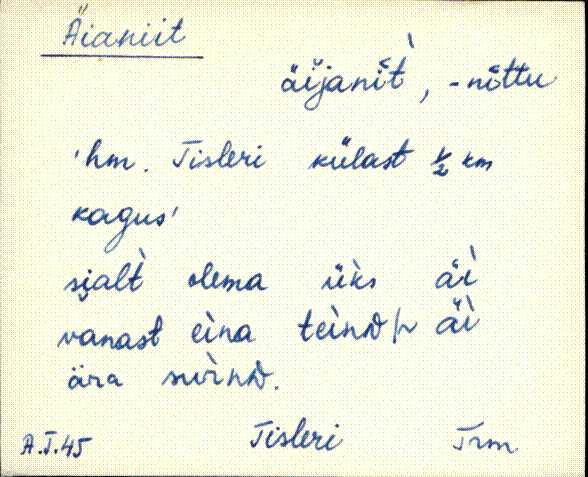 Äianiit
äi̬janìt̀, -nìttu
'hm. Tisleri külast ½ km
kagus'
si̬alt̀ olema üks äì
vanast eìna teìnD/r äì
ära suìnD.
A.T.45 Tisleri Trm